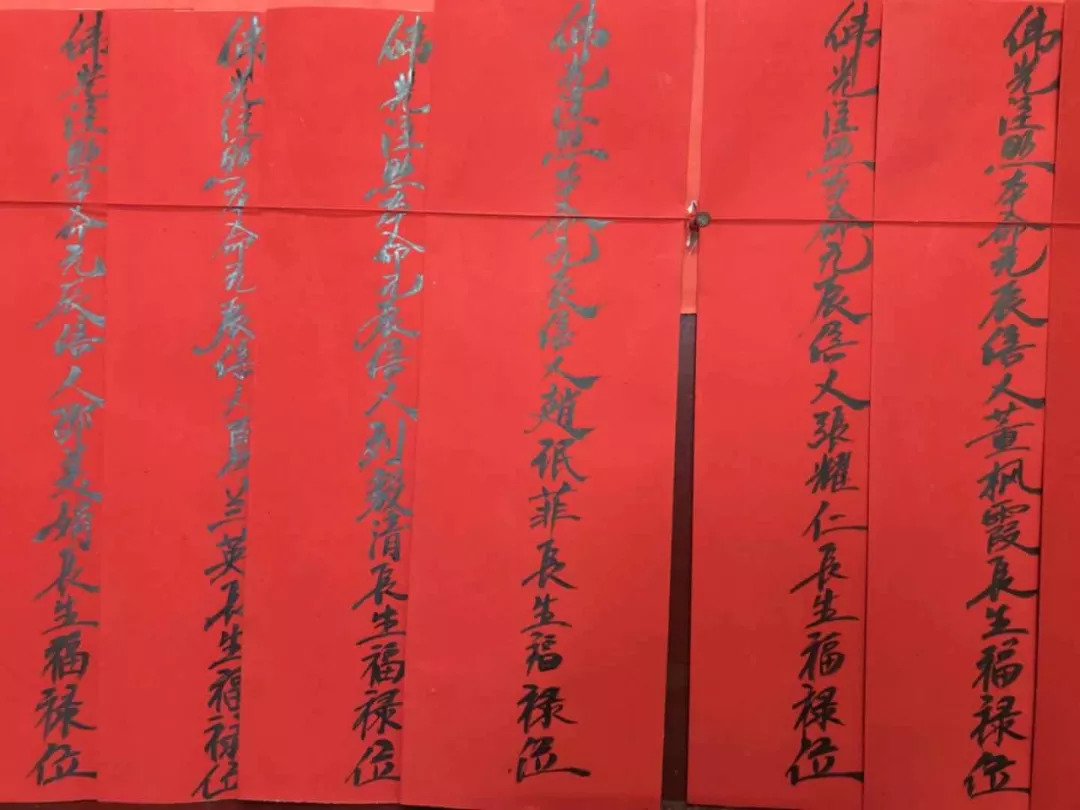 佛光注照本命元辰信人董枫霞長生福禄位
佛光注照本命元辰信人張耀仁長生福禄位
佛光注照本命元辰信人趙菲長生福禄位
佛光注照本命元辰信人刘毅清長生福禄位
佛光注照本命元辰信人夏兰英長生福禄位
佛光注照本命元辰信人邵美娟長生福禄位